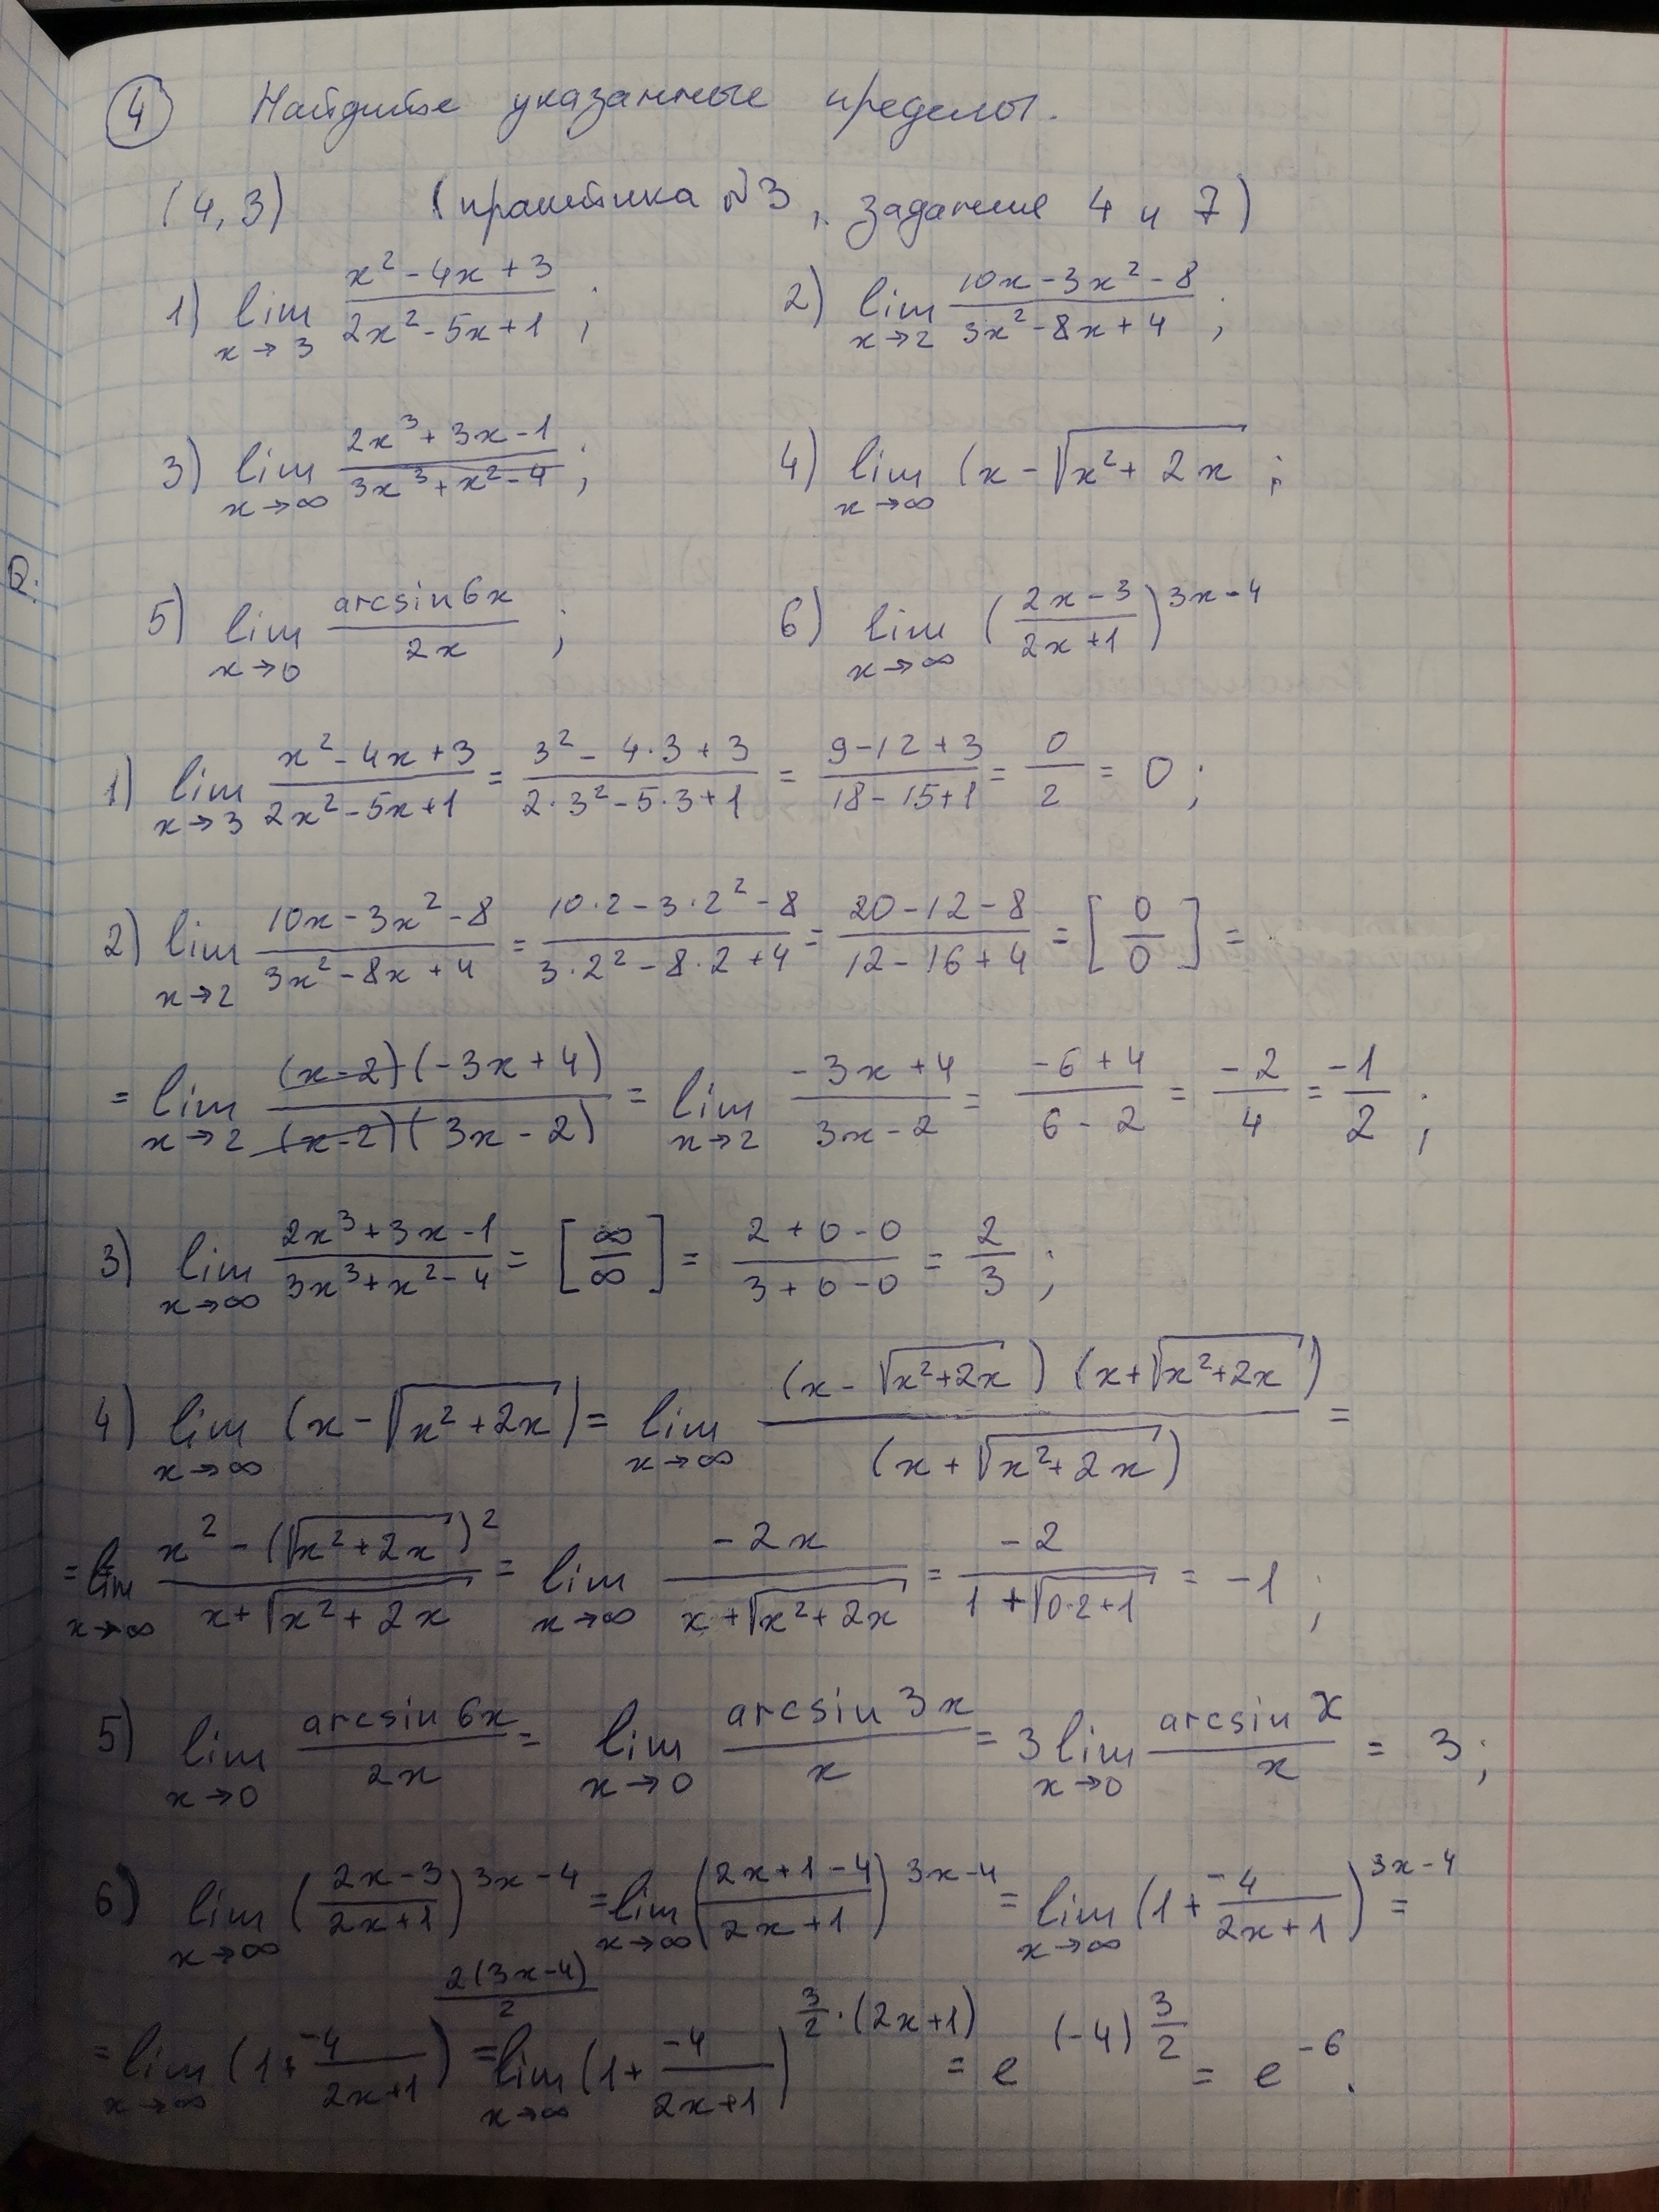 ④ Найдите указанные пределы.
(4,3) (практика №3, задание 4 и 7)
1) lim x→3 (x² - 4x + 3)/(2x² - 5x + 1) ; 2) lim x→2 (10x - 3x² - 8)/(3x² - 8x + 4) ;
3) lim x→∞ (2x³ + 3x - 1)/(3x³ + x² - 4) ; 4) lim x→∞ (x - √(x² + 2x) ;
Q.
5) lim x→0 (arcsin 6x)/(2x) ; 6) lim x→∞ ((2x - 3)/(2x + 1))^(3x - 4)
1) lim x→3 (x² - 4x + 3)/(2x² - 5x + 1) = (3² - 4·3 + 3)/(2·3² - 5·3 + 1) = (9 - 12 + 3)/(18 - 15 + 1) = 0/2 = 0 ;
2) lim x→2 (10x - 3x² - 8)/(3x² - 8x + 4) = (10·2 - 3·2² - 8)/(3·2² - 8·2 + 4) = (20 - 12 - 8)/(12 - 16 + 4) = [0/0] =
= lim x→2 ((x - 2)(-3x + 4))/((x - 2)(3x - 2)) = lim x→2 (-3x + 4)/(3x - 2) = (-6 + 4)/(6 - 2) = -2/4 = -1/2 ;
3) lim x→∞ (2x³ + 3x - 1)/(3x³ + x² - 4) = [∞/∞] = (2 + 0 - 0)/(3 + 0 - 0) = 2/3 ;
4) lim x→∞ (x - √(x² + 2x)) = lim x→∞ ((x - √(x² + 2x)) (x + √(x² + 2x)))/((x + √(x² + 2x))) =
= lim x→∞ (x² - (√(x² + 2x))²)/(x + √(x² + 2x)) = lim x→∞ (-2x)/(x + √(x² + 2x)) = -2/(1 + √(0·2 + 1)) = -1 ;
5) lim x→0 (arcsin 6x)/(2x) = lim x→0 (arcsin 3x)/x = 3 lim x→0 (arcsin x)/x = 3 ;
6) lim x→∞ ((2x - 3)/(2x + 1))^(3x - 4) = lim x→∞ ((2x + 1 - 4)/(2x + 1))^(3x - 4) = lim x→∞ (1 + -4/(2x + 1))^(3x - 4) =
= lim x→∞ (1 + -4/(2x + 1))^(2(3x - 4)/2) = lim x→∞ (1 + -4/(2x + 1))^(3/2·(2x + 1)) = e^((-4) 3/2) = e^(-6).